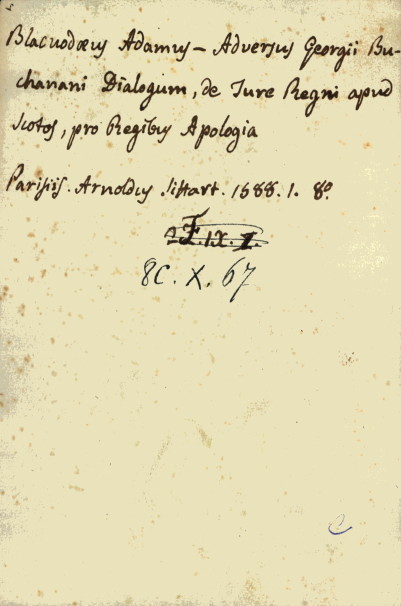 Blacuodæus Adamus - Adversus Georgii Bu-
chanani Dialogum, de Jure Regni apud
Scotos, pro Regibus Apologia
Parisiis. Arnoldus Sittart. 1588. 1. 8º.
F. IX. I.
8C. X. 67